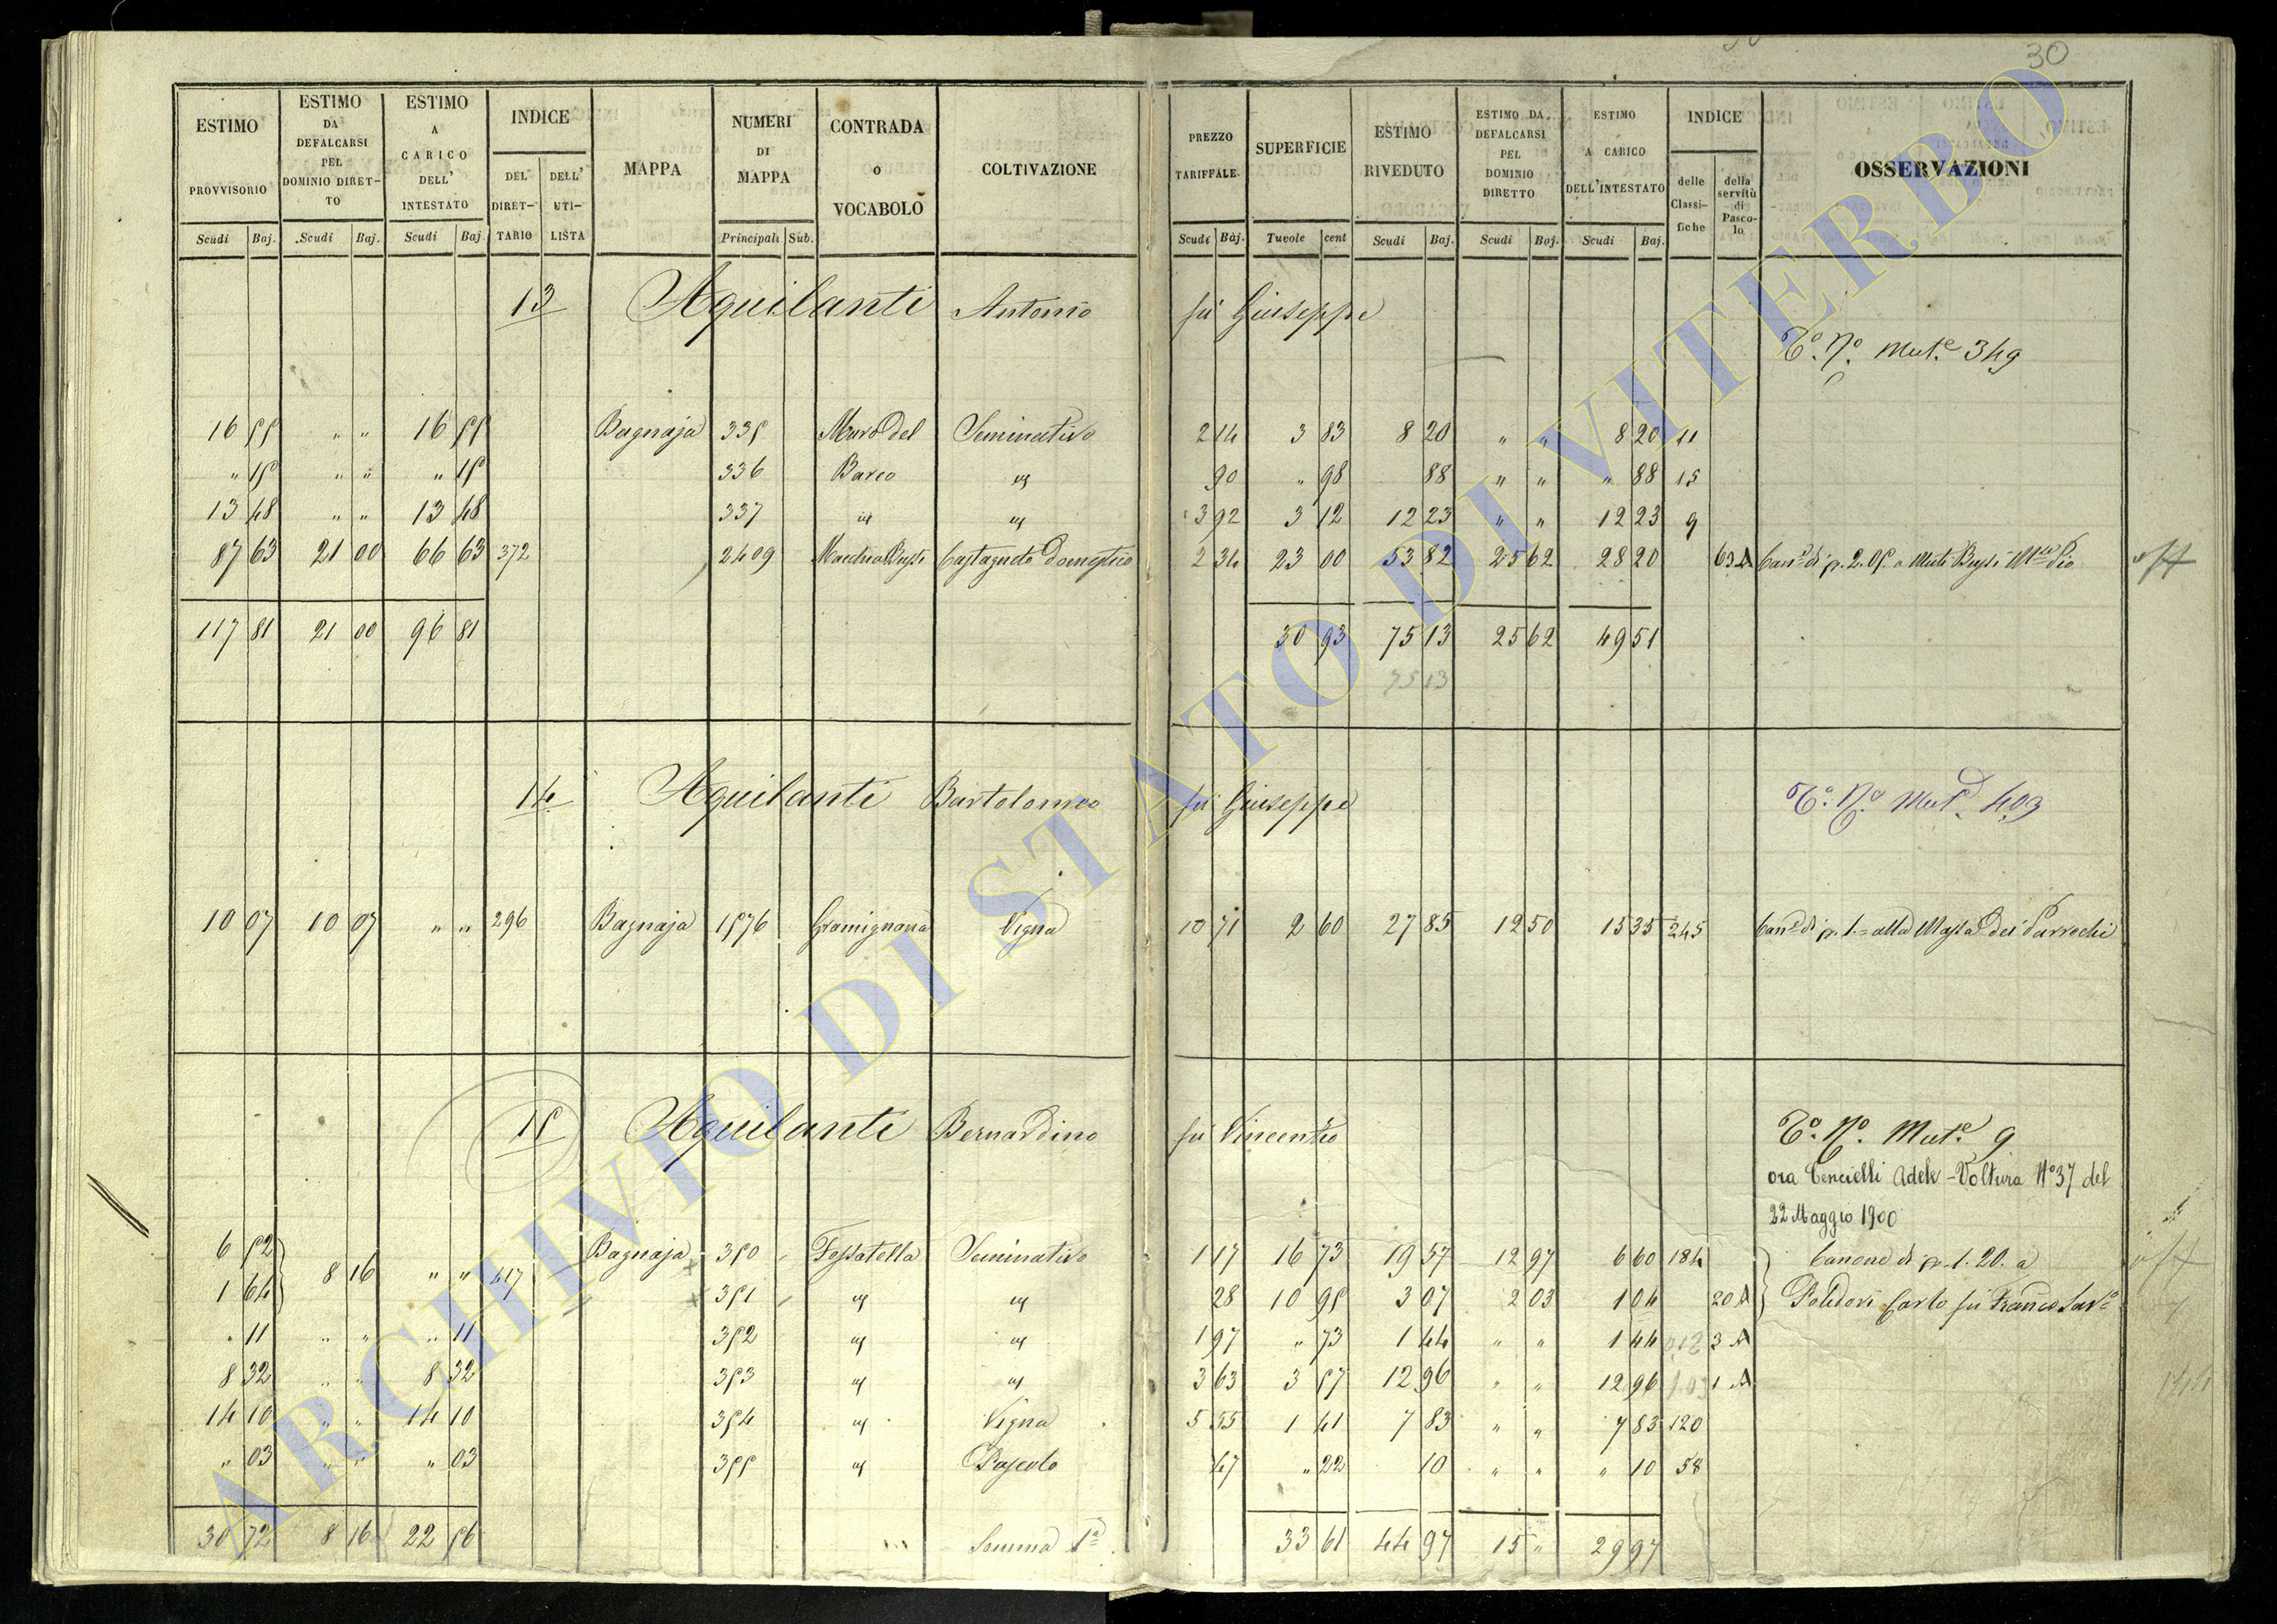 30
ESTIMO PROVVISORIO Scudi Baj. ESTIMO DA DEFALCARSI PEL DOMINIO DIRET-TO Scudi Baj. ESTIMO A CARICO DELL' INTESTATO Scudi Baj. INDICE DEL DIRET-TARIO DELL' UTI-LISTA MAPPA NUMERI DI MAPPA Principali Sub. CONTRADA o VOCABOLO COLTIVAZIONE PREZZO TARIFFALE Scudi Baj. SUPERFICIE Tavole cent ESTIMO RIVEDUTO Scudi Baj. ESTIMO DA DEFALCARSI PEL DOMINIO DIRETTO Scudi Baj. ESTIMO A CARICO DELL'INTESTATO Scudi Baj. INDICE delle Classi-fiche della servitù di Pasco-lo OSSERVAZIONI
13 Aquilanti Antonio fù Giuseppe
Mut.e 349
16 55 " " 16 55 Bagnaja 335 Muro del Seminativo 2 14 3 83 8 20 " " 8 20 11
" 15 " " " 15 336 Barco " 90 " 98 88 " " " 88 15
13 48 " " 13 48 337 3 92 3 12 12 23 " " 12 23 9
87 63 21 00 66 63 372 2409 Castagneto domestico 2 34 23 00 53 82 25 62 28 20 63 A
117 81 21 00 96 81 30 93 75 13 25 62 49 51
75 13
14 Aquilanti Bartolomeo fù Giuseppe
403
10 07 10 07 " " 296 Bagnaja 1576 Gramignana Vigna 10 71 2 60 27 85 12 50 15 35 245 alla Massa dei Parrochi
15 Aquilanti Bernardino fù Vincenzo
Mut.e 9
ora Cencielli Adele - Voltura N° 37 del
22 Maggio 1900
6 52 Bagnaja 350 Fossatella Seminativo 1 17 16 73 19 57 12 97 6 60 184 Canone di p. 1. 20. a
8 16 " " 417
1 64 351 28 10 95 3 07 2 03 1 04 20 A Polidori Carlo fù
" 11 " " " 11 352 1 97 " 73 1 44 " " 1 44 3 A
8 32 " " 8 32 353 3 63 3 57 12 96 " " 12 96 1 A
14 10 " " 14 10 354 Vigna 5 55 1 41 7 83 " " 7 83 120
" 03 " " " 03 355 Pascolo 47 " 22 10 " " " 10 58
30 72 8 16 22 56 Somma 1a 33 61 44 97 15 " 29 97
ARCHIVIO DI STATO DI VITERBO